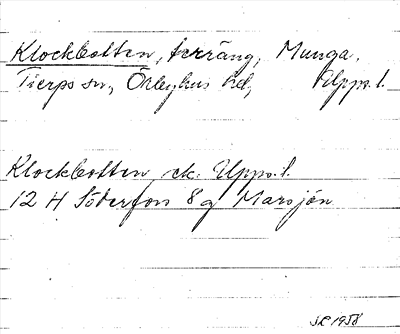 Klockbotten, terräng, Munga,
Tierps sn, Örbyhus hd, Upps. l.
Klockbotten, ek. Upps. l.
12 H Söderfors 8 g Marsjön
1958